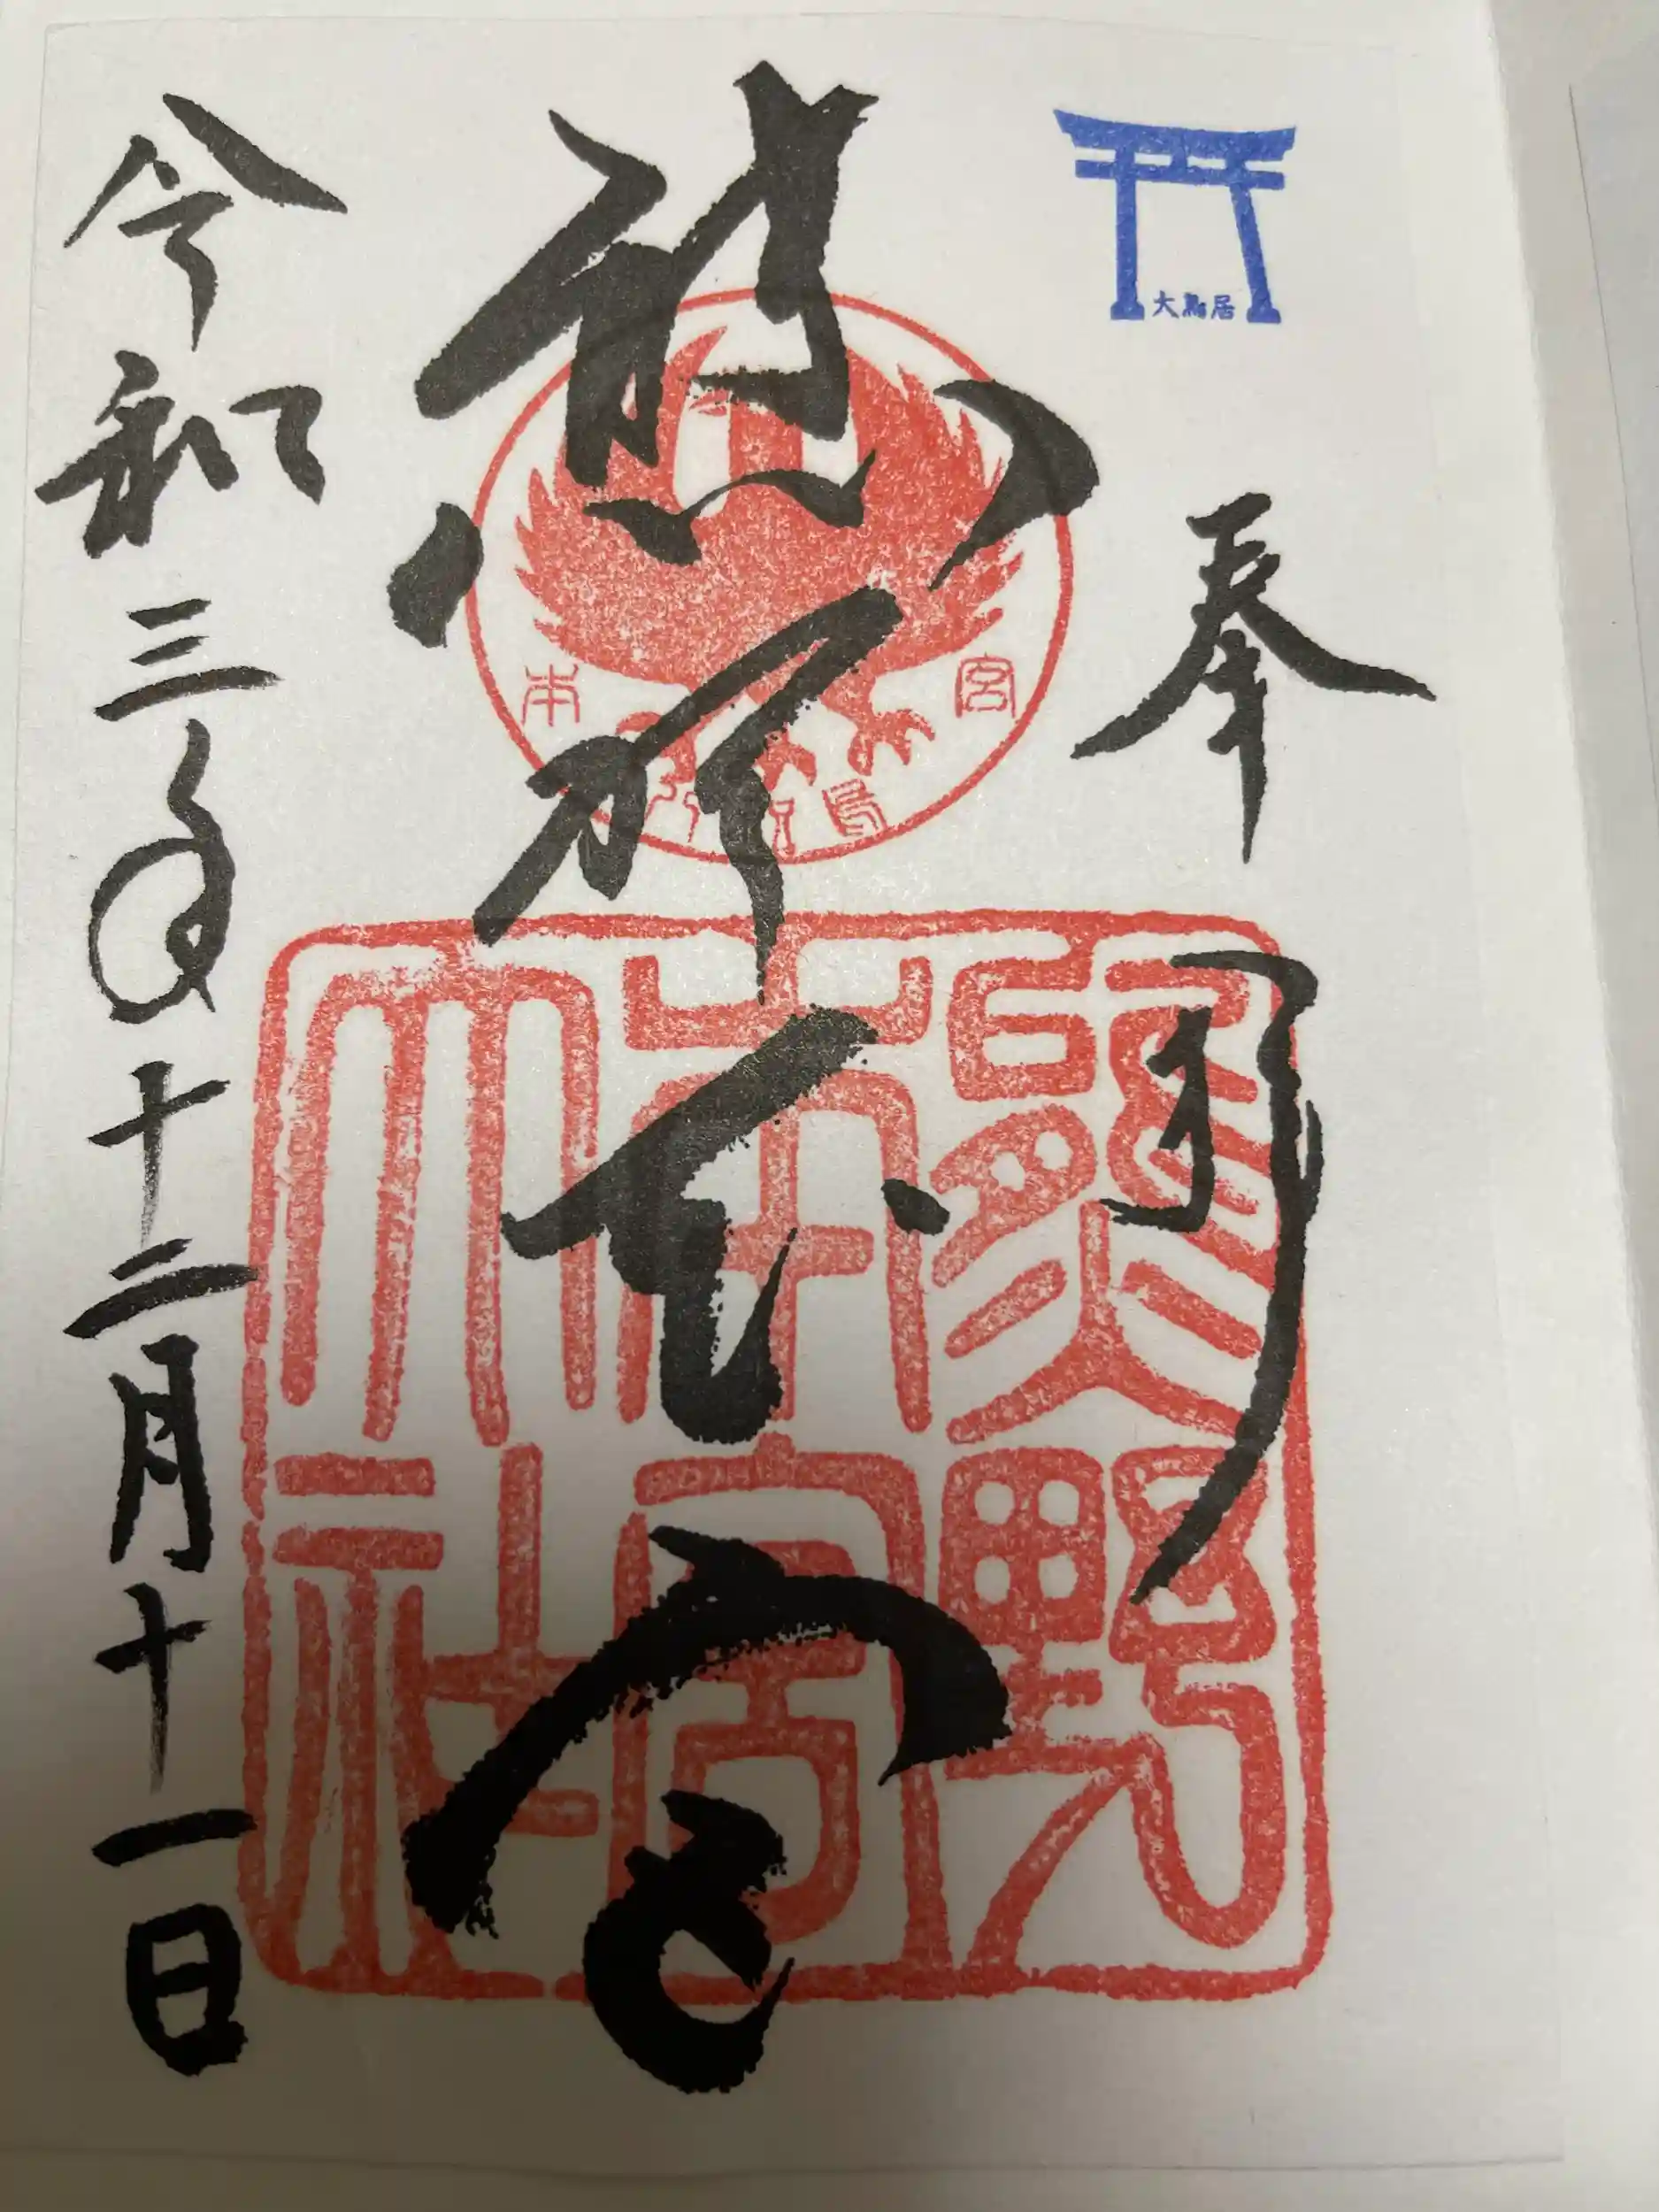 大鳥居
奉拝
熊野本宮
本宮
八咫烏
熊野
本宮
大社
令和三年十二月十一日